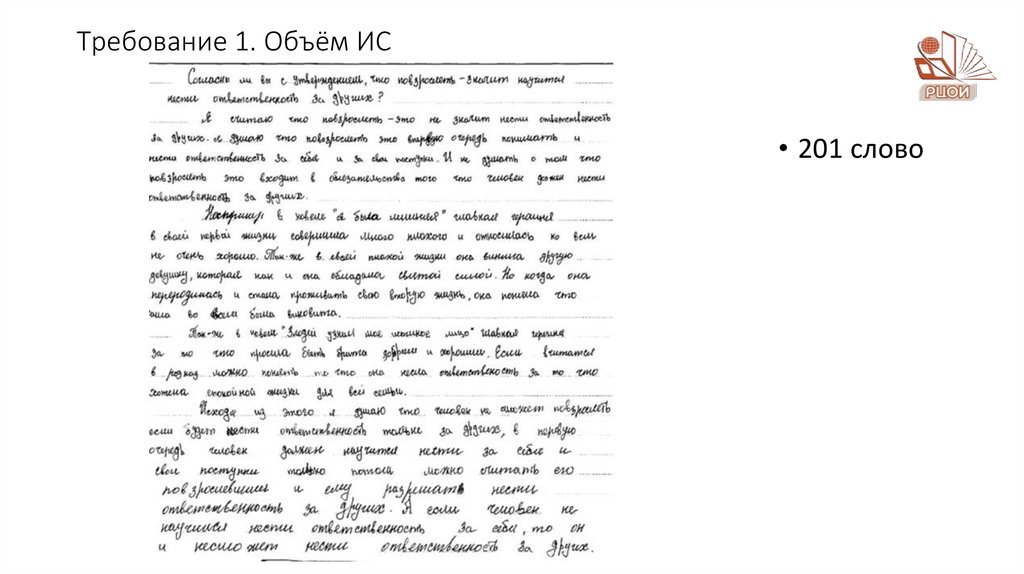 Требование 1. Объём ИС
РЦОИ
• 201 слово
Согласны ли вы с утверждением, что повзрослеть - значит научится
нести ответственность за других?
Я считаю что повзрослеть - это не значит нести ответственность
за других. я думаю что повзрослеть это впервую очередь понимать и
нести ответственность за себя и за свои поступки. И не думать о том что
повзрослеть это входит в обязательства того что человек должен нести
ответственность за других.
Например в новеле "я была лишняя" главная героиня
в своей первой жизни совершила много плохого и относилась ко всем
не очень хорошо. Так-же в своей плохой жизни она винила другую
девушку, которая как и она обладала святой силой. Но когда она
переродилась и стала проживать свою вторую жизнь, она поняла что
она во всём была виновата.
Так-же в новеле "Злодей узнал мое истиное лицо" главная героиня
за то что просила быть брата добрым и хорошим. Если вчитатся
в розказ можно понять то что она несла ответственость за то что
хотела спокойной жизни для всей семьи.
Исходя из этого я думаю что человек не сможет повзрослеть
если будет нести ответственность только за других, в первую
очередь человек должен научится нести за себя и
свои поступки только потом можно считать его
повзрослевшим и ему разришать нести
ответственность за других. А если человек не
научился нести ответственность за себя, то он
и несможет нести ответственность за других.